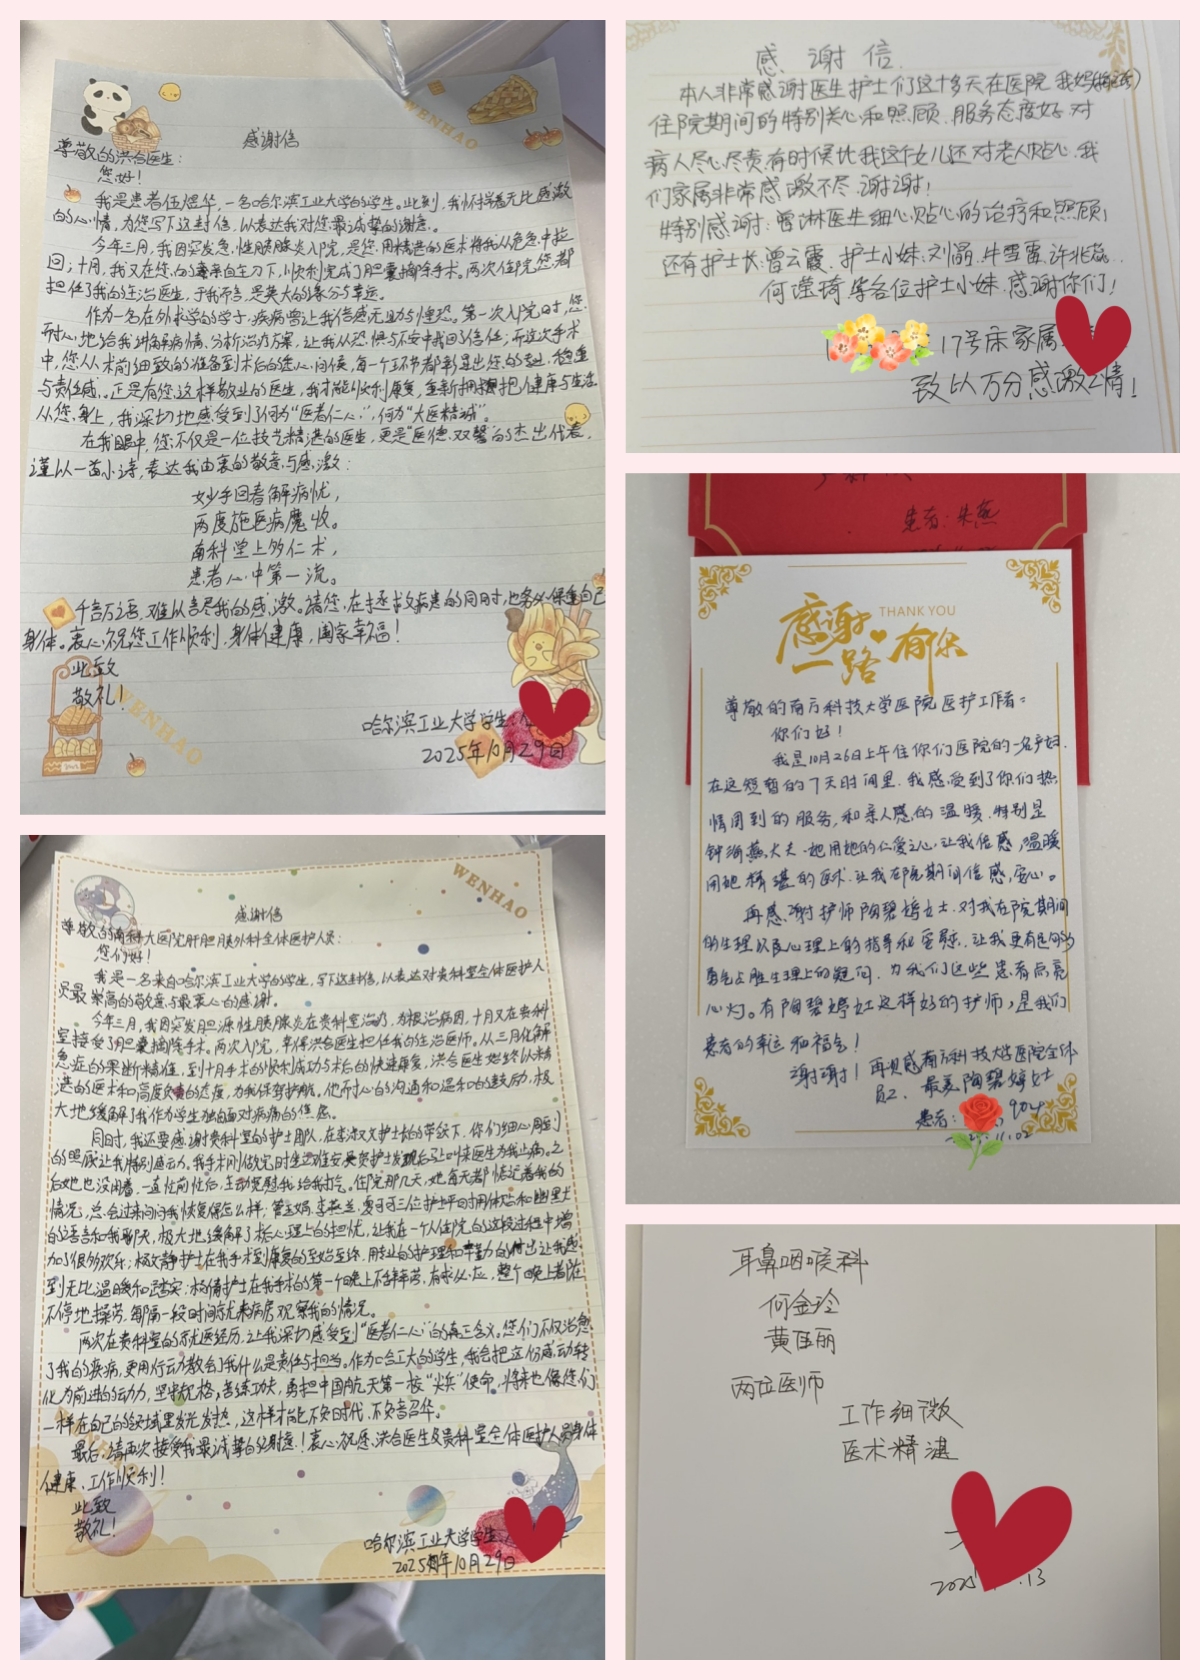 WENHAO
感谢信
尊敬的洪合医生：
您好！
我是患者伍煜华，一名哈尔滨工业大学的学生。此刻，我怀揣着无比感激
的心情，为您写下这封信，以表达我对您最诚挚的谢意。
今年三月，我因突发急性胰腺炎入院，是您用精湛的医术将我从危急中拉
回；十月，我又在您的亲自主刀下，顺利完成了胆囊摘除手术。两次住院您都
担任了我的主治医生，于我而言，是莫大的缘分与幸运。
作为一名在外求学的学子，疾病曾让我倍感无助与惶恐。第一次入院时，您
耐心地给我讲解病情、分析治疗方案，让我从恐惧与不安中找回了信任；而这次手术
中，您从术前细致的准备到术后的悉心问候，每一个环节都彰显出您的专业、稳重
与责任感。正是有您这样敬业的医生，我才能顺利康复，重新拥抱健康与生活
从您身上，我深切地感受到了何为“医者仁心”，何为“大医精诚”。
在我眼中，您不仅是一位技艺精湛的医生，更是“医德双馨”的杰出代表，
谨以一首小诗，表达我由衷的敬意与感激：
妙手回春解病忧，
两度施医病魔收。
南科堂上多仁术，
患者心中第一流。
千言万语，难以言尽我的感激。请您在拯救病患的同时，也务必保重自己
身体。衷心祝您工作顺利，身体健康，阖家幸福！
此致
敬礼！
WENHAO
哈尔滨工业大学学生：
2025年10月29日
WENHAO
感谢信
尊敬的南科大医院肝胆胰外科全体医护人员：
您们好！
我是一名来自哈尔滨工业大学的学生，写下这封信，以表达对贵科室全体医护人
员最崇高的敬意与最衷心的感谢。
今年三月，我因突发胆源性胰腺炎在贵科室治疗，为根治病因，十月又在贵科
室接受了胆囊摘除手术。两次入院，幸得洪合医生担任我的主治医师。从三月化解
急症的果断精准，到十月手术的顺利成功与术后的快速康复，洪合医生始终以精
湛的医术和高度负责的态度，为我保驾护航。他耐心的沟通和温和的鼓励，极
大地缓解了我作为学生独自面对病痛的焦虑。
同时，我还要感谢贵科室的护士团队，在李淑文护士长的带领下，你们细心周到
的照顾让我特别感动。我手术刚做完时坐立难安，护士发现后马上叫来医生为我止痛。之
后她也没闲着，一直忙前忙后，主动宽慰我给我打气。住院那几天，她每天都惦记着我的
情况，总会过来问问我恢复得怎么样；三位护士平时用体贴和幽默
的语言和我聊天，极大地缓解了术后心理上的担忧，让我在一个人住院的这段过程中增
加了很多欢乐；护士在我手术到康复的至始至终，用专业的护理和辛勤的付出让我感
到无比温暖和踏实；杨倩护士在我手术的第一个晚上不辞辛劳，有求必应，整个晚上都在
不停地操劳，每隔一段时间就来病房观察我的情况。
两次在贵科室的就医经历，让我深切感受到“医者仁心”的真正含义。您们不仅治愈
了我的疾病，更用行动教会了我什么是责任与担当。作为哈工大的学生，我会把这份感动转
化为前进的动力，坚守规格，苦练功夫，勇担中国航天第一校“尖兵”使命，将来也像您们
一样在自己的领域里发光发热，这样才能不负时代，不负韶华。
最后，请再次接受我最诚挚的谢意！衷心祝愿洪合医生及贵科室全体医护人员身体
健康、工作顺利！
此致
敬礼！
哈尔滨工业大学学生
2025年10月29日
感谢信
本人非常感谢医生护士们这十多天在医院我妈
住院期间的特别关心和照顾，服务态度好，对
病人尽心尽责，有时候比我这个女儿还对老人贴心，我
们家属非常感激不尽，谢谢！
特别感谢：曾琳医生细心贴心的治疗和照顾，
还有护士长：曾云霞，护士小妹：刘涓，牛雪雷，许兆蕊..
何滢琦等各位护士小妹，感谢你们！
17号床家属
致以万分感激之情！
患者：朱燕
感谢 THANK YOU
一路有你
尊敬的南方科技大学医院医护工作者：
你们好！
我是10月26日上午住你们医院的一名产妇，
在这短暂的7天时间里，我感受到了你们热
情周到的服务，和亲人感的温暖，特别是
钟海燕大夫，她用她的仁爱之心让我倍感温暖
用她精湛的医术，让我在院期间倍感安心。
再感谢护师陶碧婷女士，对我在院期间
的生理以及心理上的指导和安慰，让我更有足够的
勇气去胜生理上的疑问，为我们这些患者点亮
心灯。有陶碧婷女士这样好的护师，是我们
患者的幸运和福气！
谢谢！再次感南方科技大学医院全体
员工，最美陶碧婷女士
患者： 904
11.02
耳鼻咽喉科
何金玲
黄佳丽
两位医师
工作细微
医术精湛
2025 .13